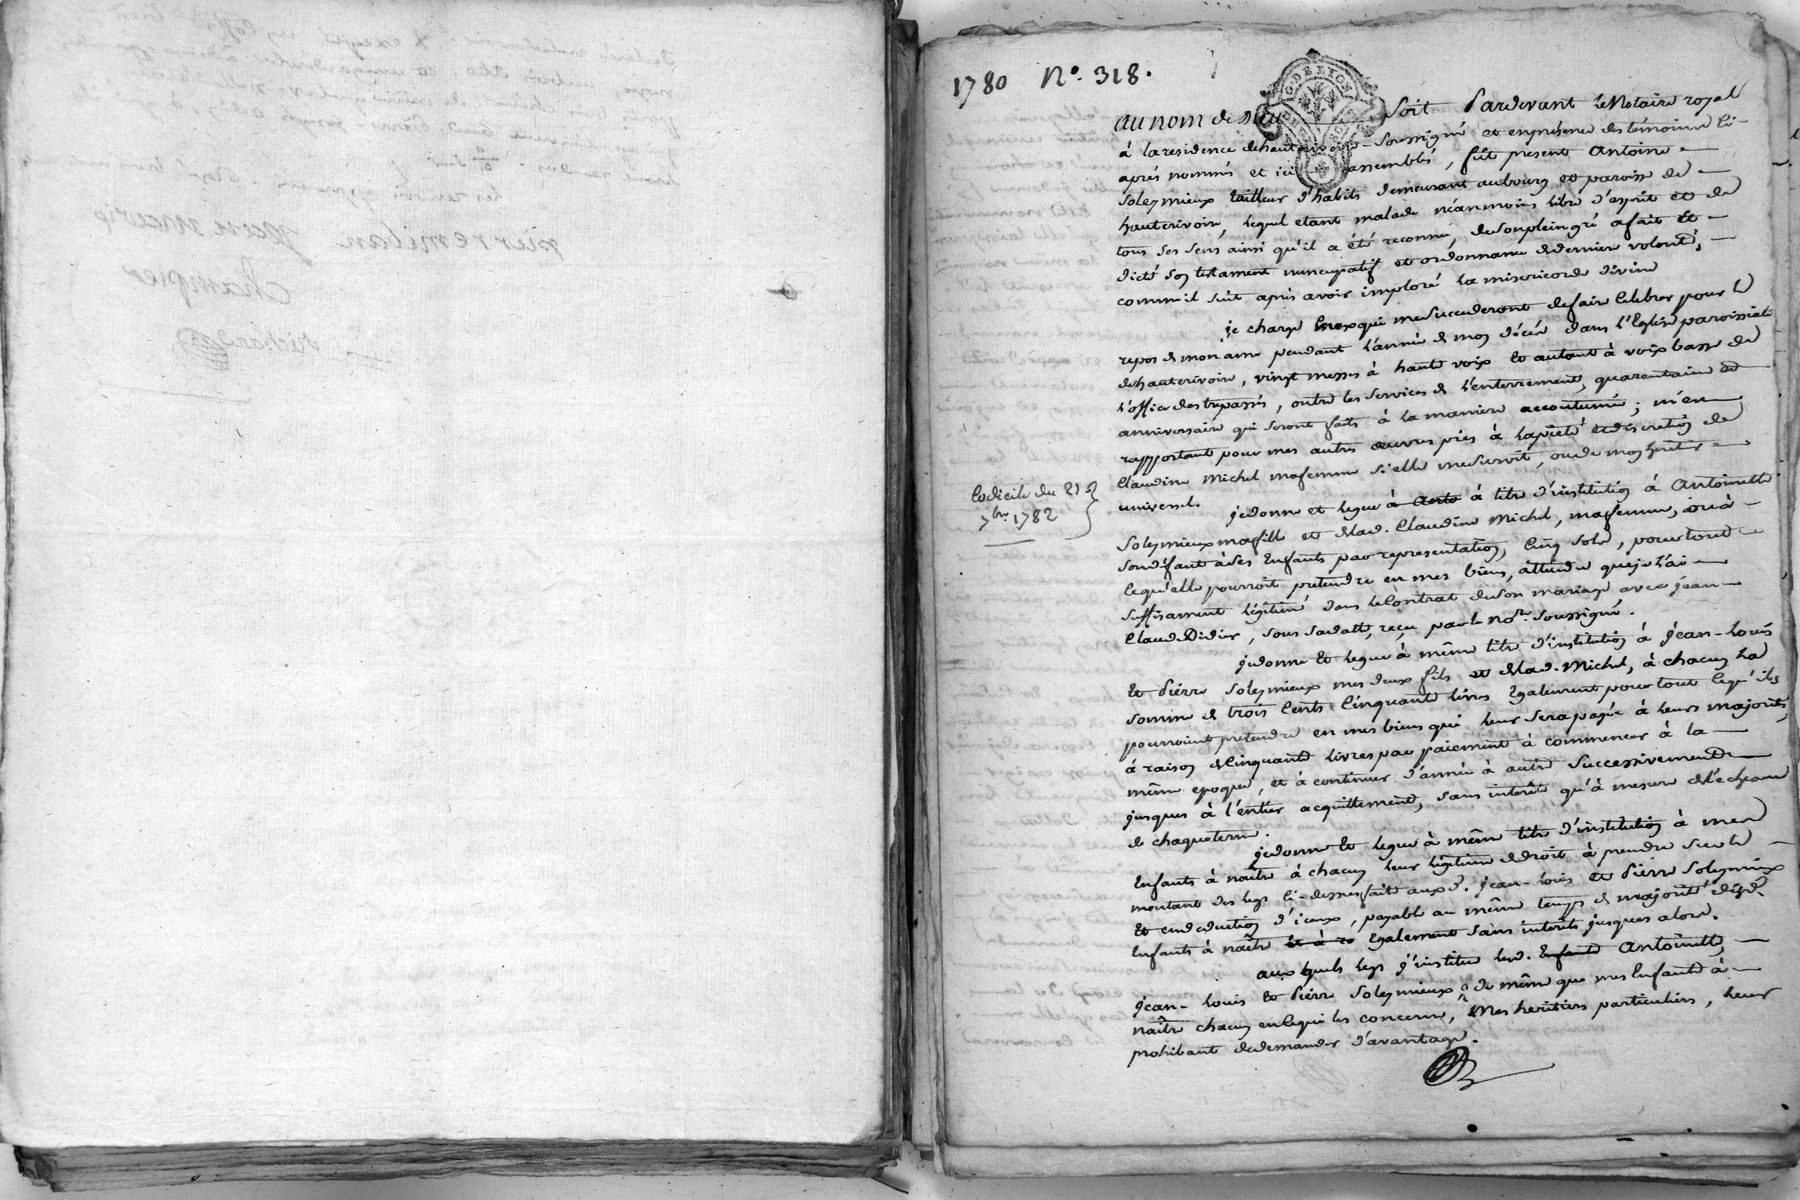 1780 N.° 318.
G. DE LYON
au nom de Dieu Soit Pardevant le Notaire royal
à la residence de hauterivoire Soussigné et en présence des témoins ci-
aprés nommés et ici assemblés, fût présent Antoine
Soleymieux tailleur d'habits demeurant au bourg et paroisse de
hauterivoire, lequel etant malade néanmoins libre d'esprit et de
tous ses sens ainsi qu'il a été reconnu, de son plein gré a fait et
dicté son testament nuncupatif et ordonnance de derniere volonté,
comme il suit après avoir imploré la misericorde divine
je charge ceux qui me succederont de faire celebrer pour le
repos de mon ame pendant l'année de mon décès dans l'Eglise paroissiale
de hauterivoire, vingt messes à haute voix et autant à voix basse de
l'office des trepassés, outre les services de l'enterrement, quarantaine et
anniversaire qui seront faits à la maniere accoutumée; m'en
rapportant pour mes autres œuvres pies à la piété et discretion de
Claudine Michel ma femme si elle me survit, ou de mon heritier
universel.
Codicile du 21
7bre 1782
je donne et legue à Anto à titre d'institution à Antoinette
Soleymieux ma fille et de lad. Claudine Michel, ma femme, ou à
son défaut à ses Enfants par representation, cinq sols, pour tout
ce qu'elle pourroit prétendre en mes biens, attendu que je l'ai
suffisament légitimé dans le Contrat de son mariage avec jean
Claude Didier, sous sa datte, reçu par le no.re soussigné.
je donne et legue à même titre d'institution à Jean-Louis
et Pierre Soleymieux mes deux fils et de lad. Michel, à chacun la
somme de trois cents cinquante livres également pour tout ce qu'ils
pourroient prétendre en mes biens qui leur sera payée à leurs majorités,
à raison de cinquante livres par paiement à commencer à la
même epoque, et à continuer d'année à autre successivement
jusques à l'entier acquittement, sans interêt qu'à mesure de l'echeance
de chaque terme.
je donne et legue à même titre d'institution à mes
Enfants à naître à chacun leur légitime de droit à prendre sur le
montant des legs ci-dessus faits aux d. Jean-Louis et Pierre Soleymieux
et en deduction d'iceux, payable au même temps de majorité desd.
Enfants à naître et à ra également sans interêts jusques alors.
aux quels legs j'institue lesd. Enfants Antoinette,
Jean-Louis et Pierre Soleymieux de même que mes Enfants à
naître chacun en ce qui les concerne, mes heritiers particuliers, leur
prohibant de demander d'avantage.